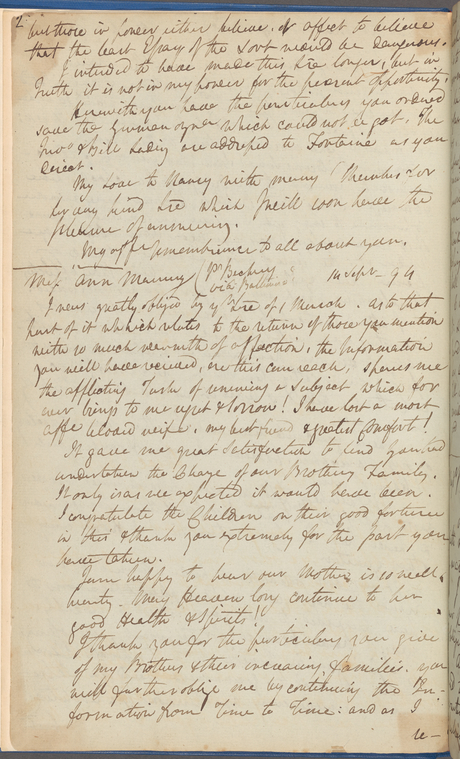 2
but those in power either believe, or affect to believe
that the least Essay of the sort would be dangerous.
I intended to have made this Lre longer, but in
Truth it is not in my power for the present opportunity.
Herewith you have the particulars you ordered
save the German which could not be got. The
& Bill Lading are addressed to Fontaine as you
direct.
My Love to Nancy with many Thanks for
her very kind Lre which I will soon have the
pleasure of answering.
My affe remembrance to all about you.
Miss Ann Manning 14 Sept - 94
I was greatly obliged by yr Lre of 1 March. As to that
part of it which relates to the return of those you mention
with so much warmth of affection, the Information
you will have received, ere this can reach, spares me
the afflicting Task of renewing a Subject which for
ever brings to me regret & sorrow! I have lost a most
affe beloved wife, my best friend & greatest comfort!
It gave me great Satisfaction to find you had
undertaken the Charge of our Brothers Family.
It only is as we expected it would have been.
I congratulate the Children on their good fortune
in this & thank you extremely for the part you
have taken.
I am happy to hear our Mother is so well &
hearty. May Heaven long continue to her
good Health & Spirits!
I thank you for the particulars you give
of my Brothers & their increasing families. You
will further oblige me by continuing the In-
formation from Time to Time: and as I
re-